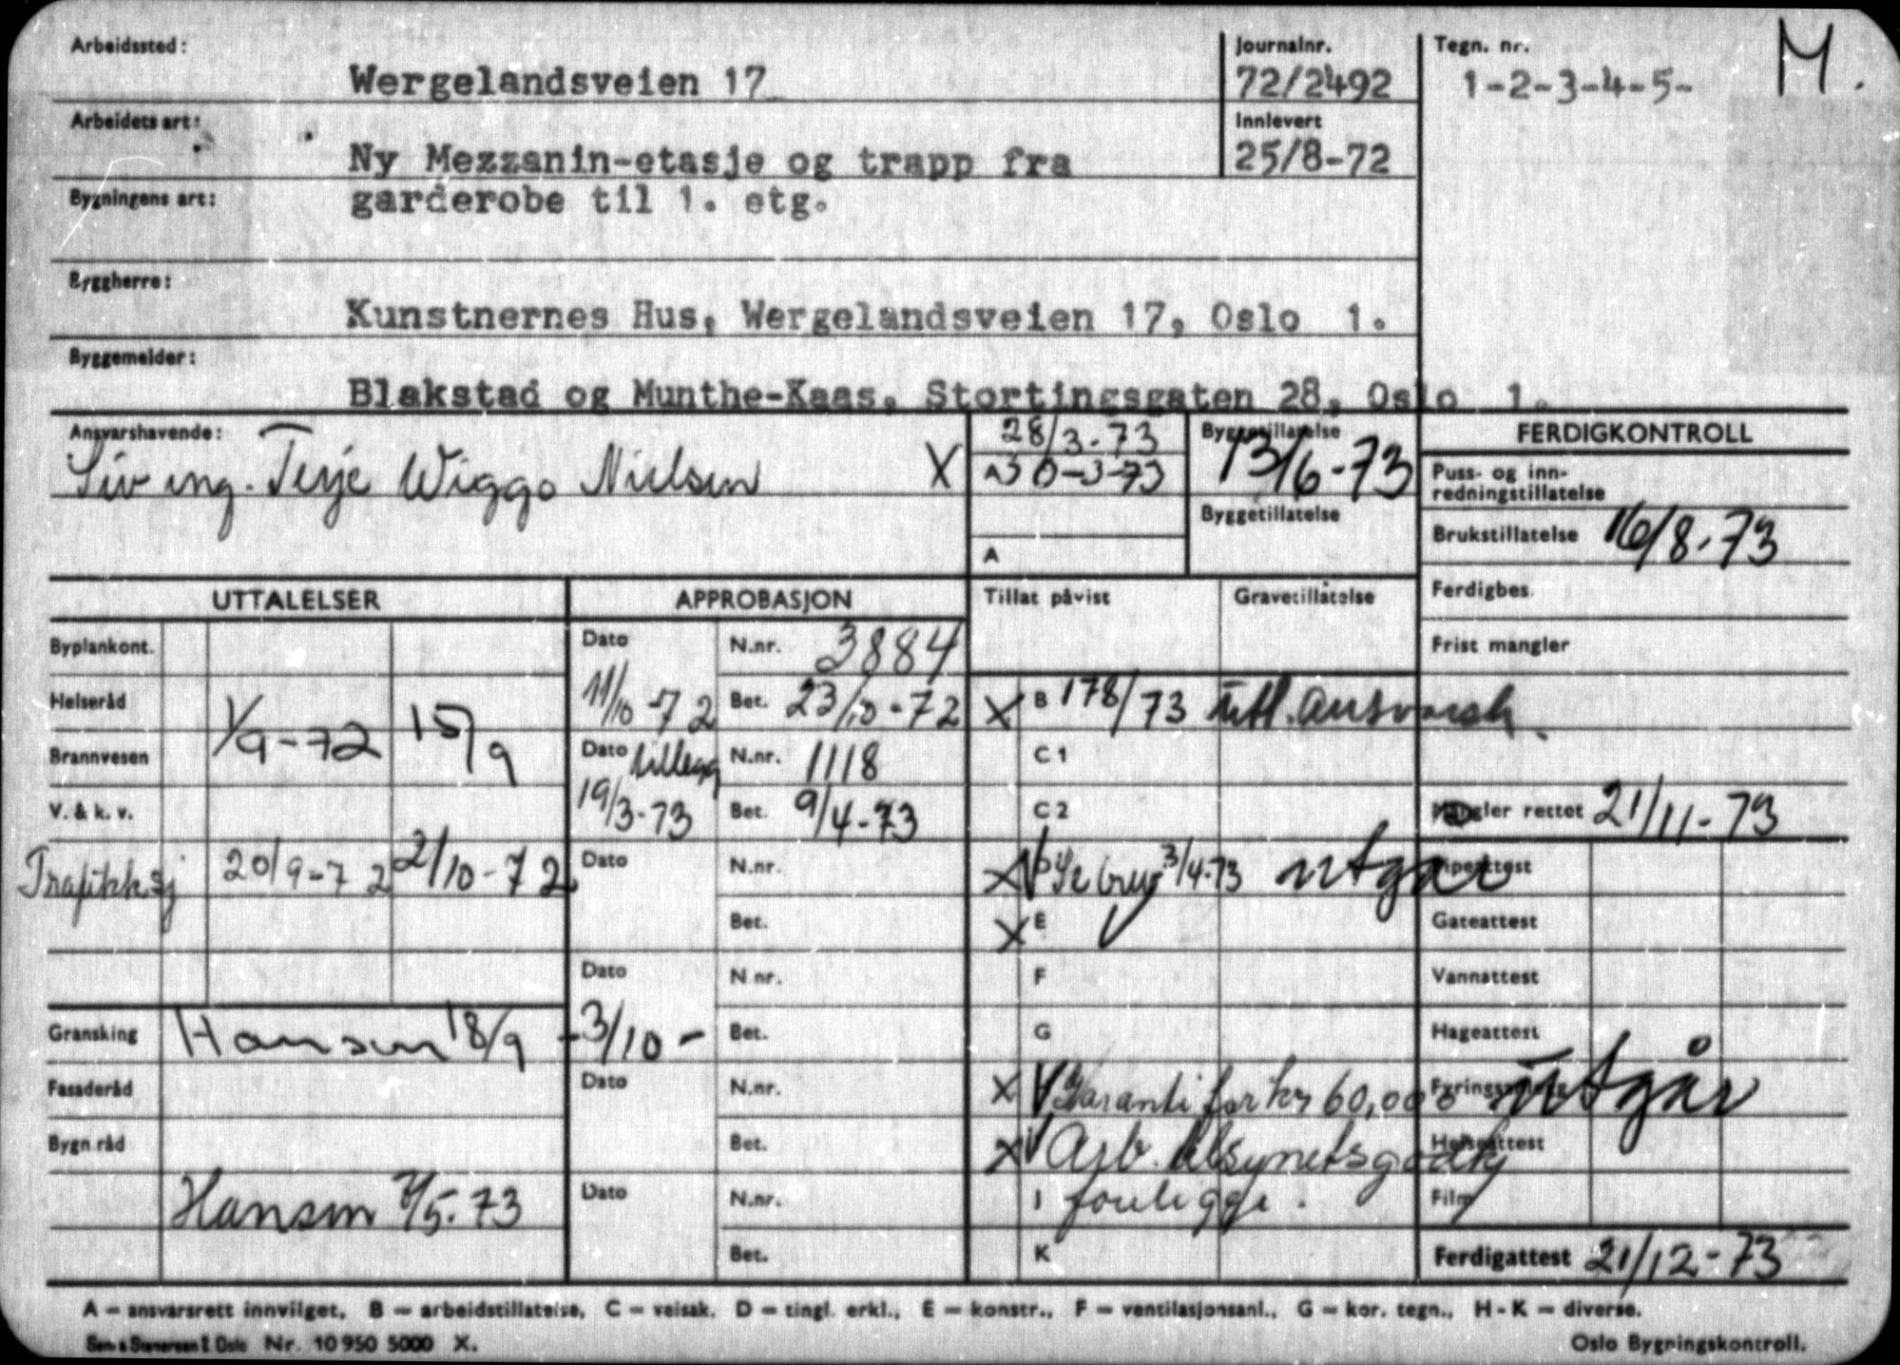 Arbeidssted:
Wergelandsveien 17
Journalnr.
72/2492
Tegn. nr.
1-2-3-4-5-
M.
Arbeidets art:
Ny Mezzanin-etasje og trapp fra
Innlevert
25/8-72
Bygningens art:
garderobe til 1. etg.
Byggherre:
Kunstnernes Hus, Wergelandsveien 17, Oslo 1.
Byggemelder:
Blakstad og Munthe-Kaas, Stortingsgaten 28, Oslo 1.
Ansvarshavende:
Siv ing. Terje Wiggo Nielsen X
28/3-73
A 30-3-73
A
Byggetillatelse
13/6-73
Byggetillatelse
FERDIGKONTROLL
Puss- og inn-
redningstillatelse
Brukstillatelse 16/8-73
Ferdigbes.
Frist mangler
Mangler rettet 21/11-73
UTTALELSER
Byplankont.
Helseråd
Brannvesen 1/9-72 15/9
V. & k. v.
Trafikksj 20/9-72 2/10-72
Gransking Hansen 18/9 - 3/10 -
Fasaderåd
Bygn.råd
Hansen 7/5-73
APPROBASJON
Dato 11/10-72 N.nr. 3884
Bet. 23/10-72
Dato tillegg 19/3-73 N.nr. 1118
Bet. 9/4-73
Dato N.nr.
Bet.
Dato N.nr.
Bet.
Dato N.nr.
Bet.
Dato N.nr.
Bet.
Tillat påvist Gravetillatelse
X B 178/73 utl. ansvarsh.
C 1
C 2
X V Se brev 3/4-73 utgår
X E V
F
G
X V Garanti for kr 60,000
X V Arb. tilsynets godkj
I foreligge.
K
Pipeattest
Gateattest
Vannattest
Hageattest
utgår
Heisattest
Film
Ferdigattest 21/12-73
A = ansvarsrett innvilget, B = arbeidstillatelse, C = veisak. D = tingl. erkl., E = konstr., F = ventilasjonsanl., G = kor. tegn., H-K = diverse.
Nr. 10950 5000 X.
Oslo Bygningskontroll.